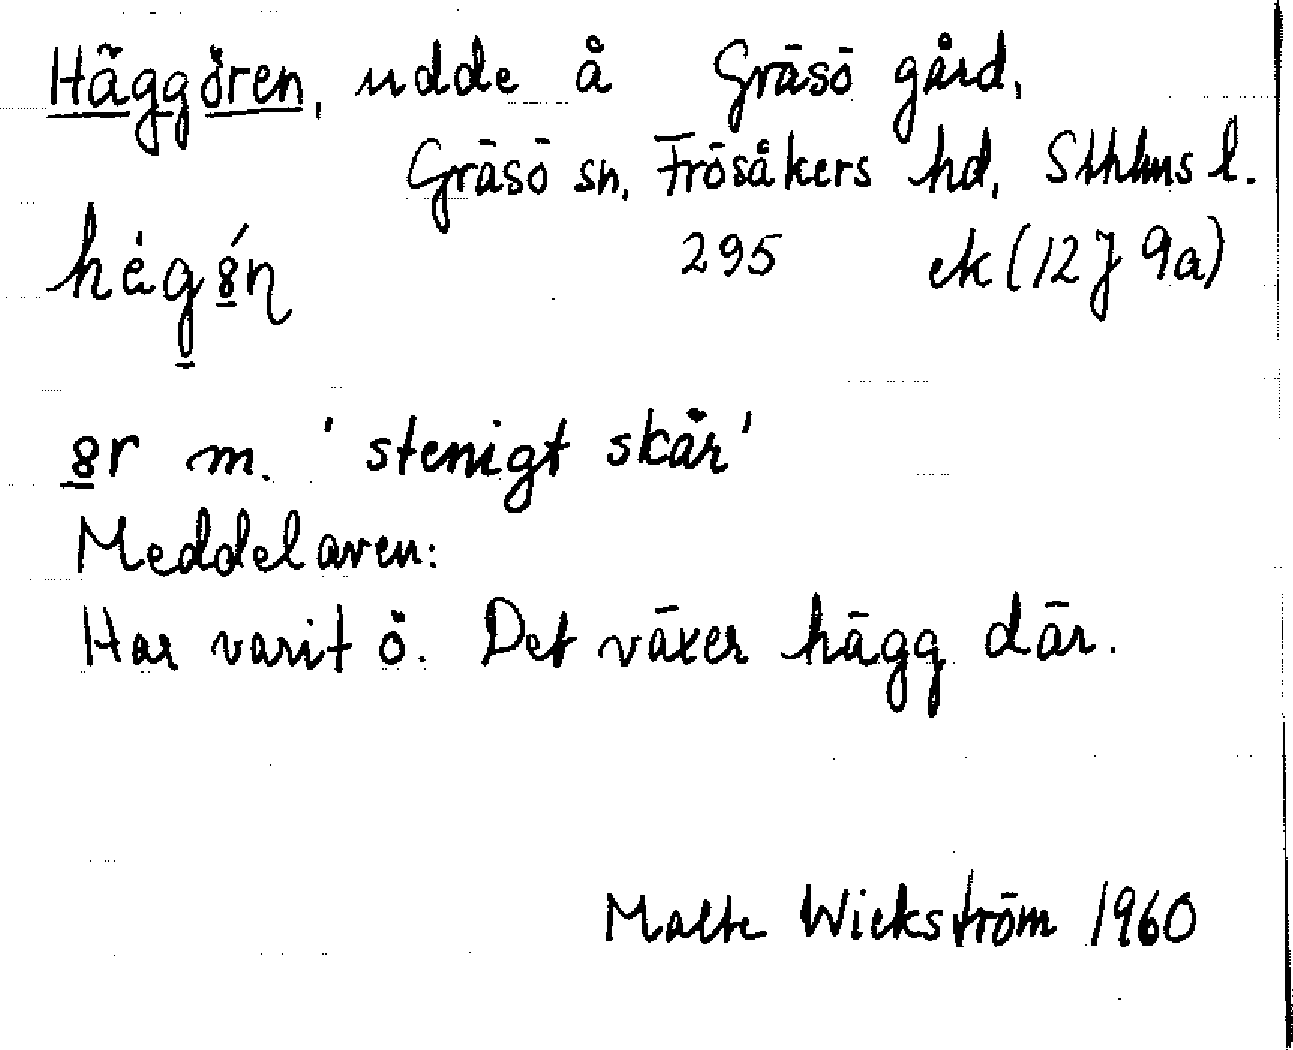 Häggören, udde å Gräsö gård,
Gräsö sn, Frösåkers hd, Sthlms l.
hèg8́n 295 ek (12J 9a)
8r m. 'stenigt skär'
Meddelaren:
Har varit ö. Det växer hägg där.
Malte Wickström 1960